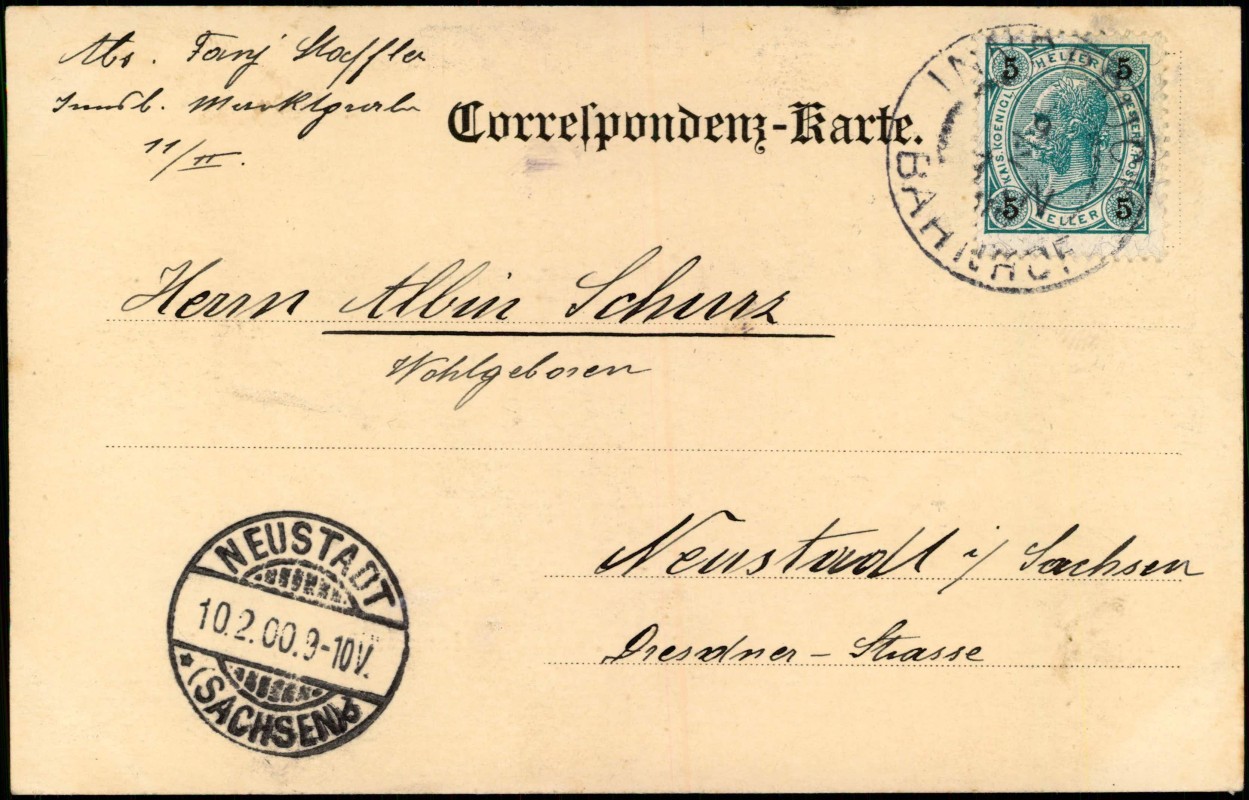 Abs. Fanj Staffler
Innsb. Marktgrabe
11/II.
Correspondenz-Karte.
BAHNHOF
5 HELLER 5
KAIS. KOENIGL. OESTERR. POST
5 HELLER 5
Herrn Albin Schurz
Wohlgeboren
Neustadt i/ Sachsen
Dresdner - Strasse
NEUSTADT
10.2.00.9-10V.
* (SACHSEN)